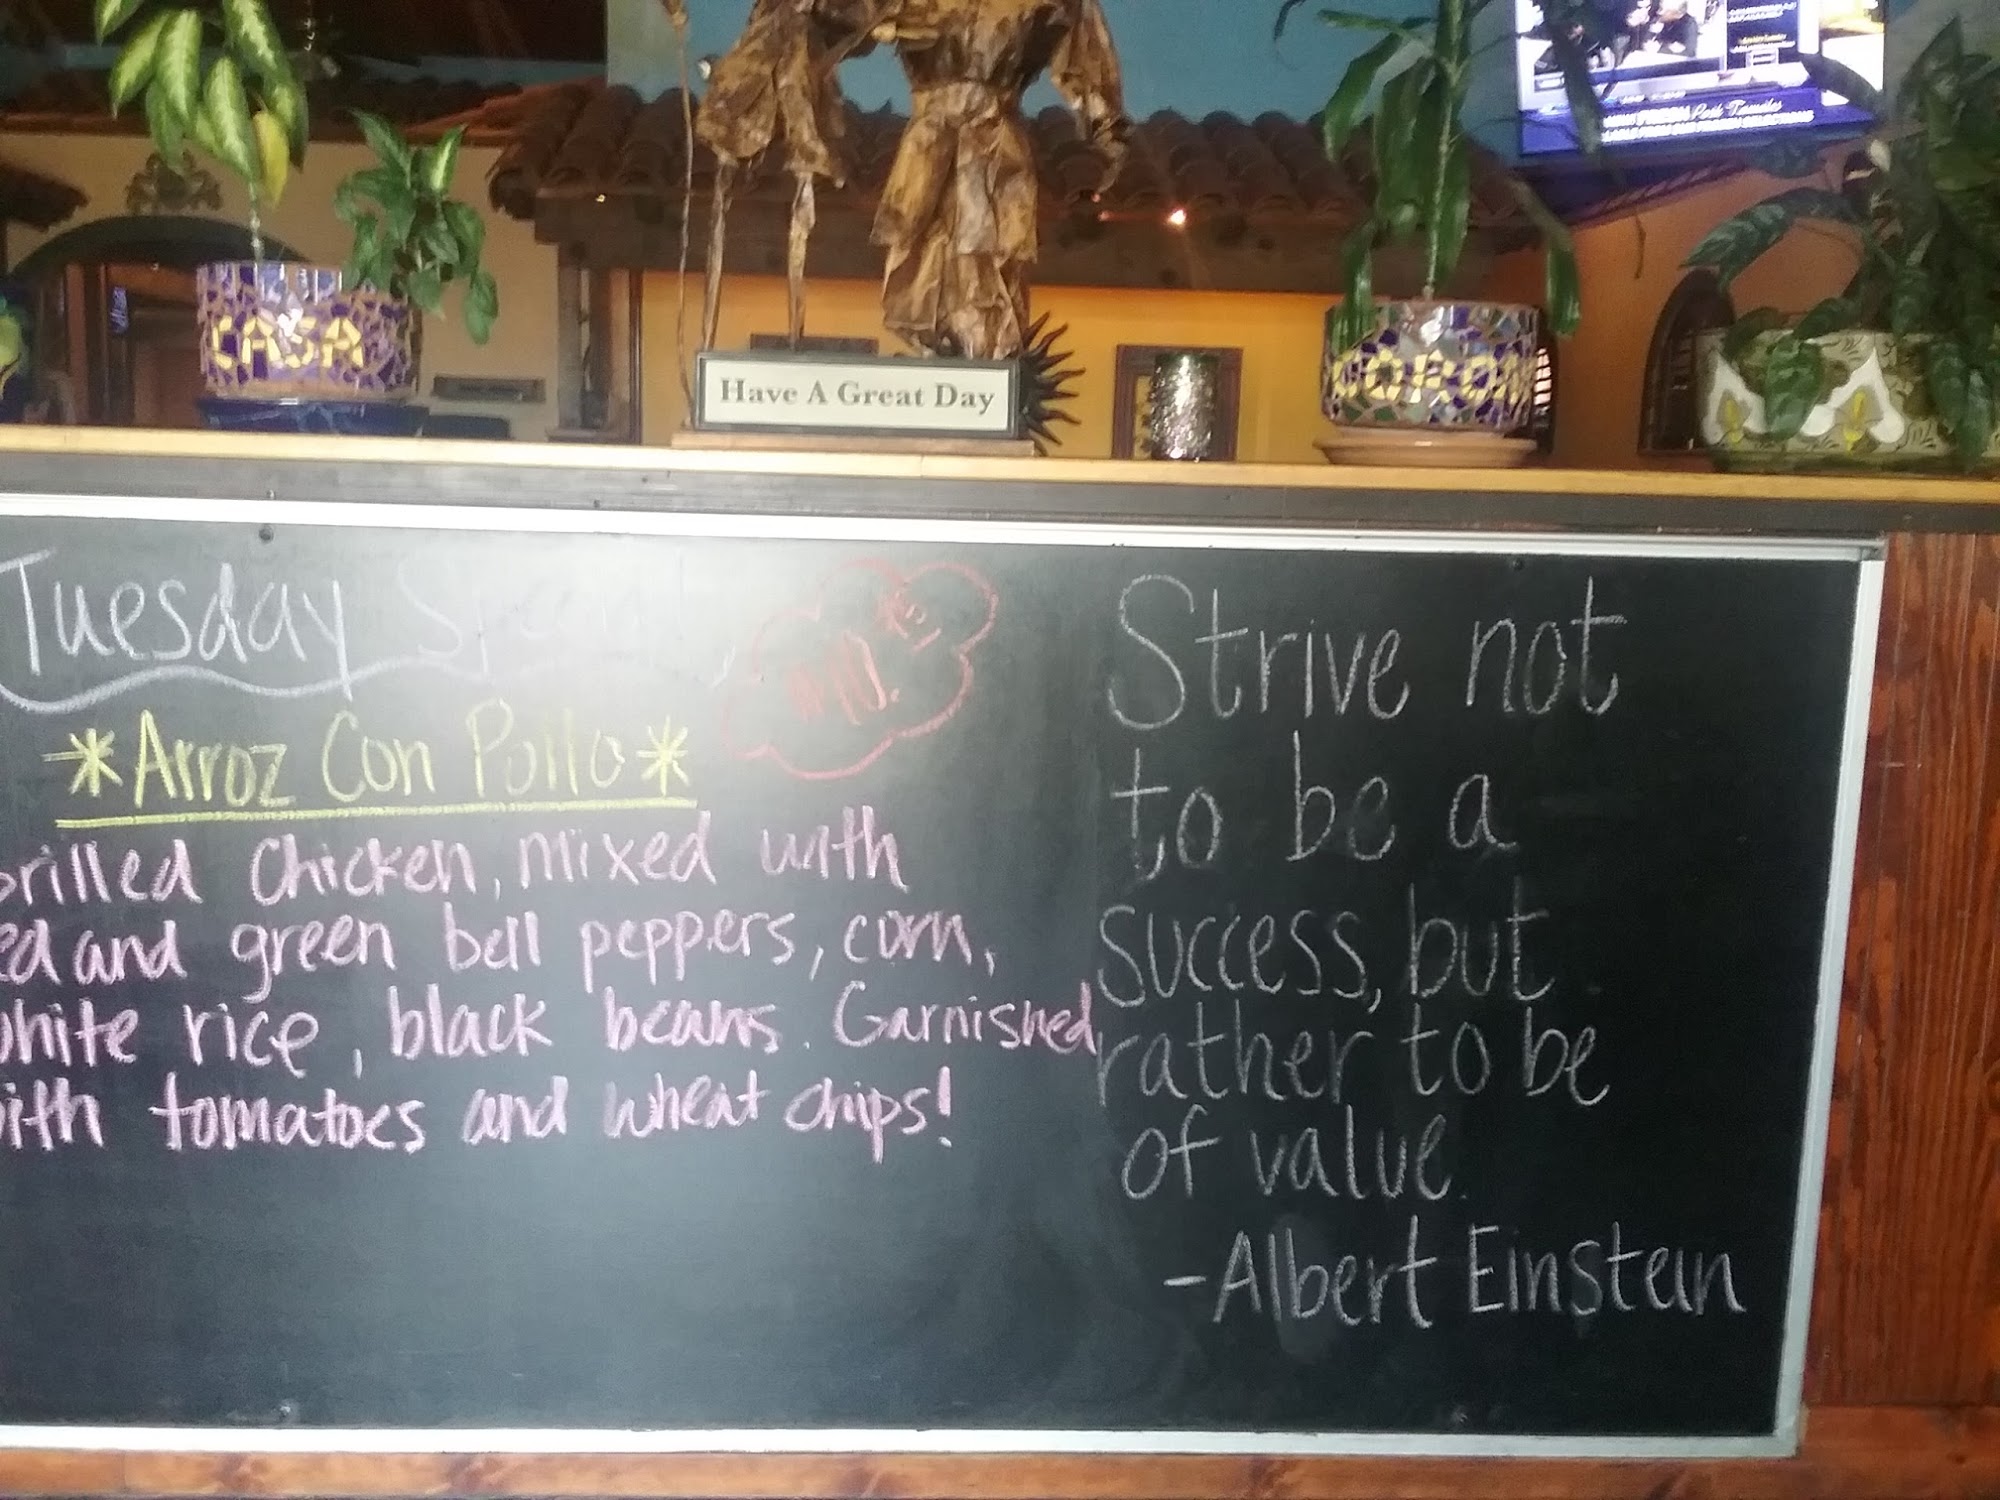 CASA
Have A Great Day
CORONA
Pork Tamales
Tuesday Special
*Arroz Con Pollo*
Grilled Chicken, mixed with
red and green bell peppers, corn,
white rice, black beans. Garnished
with tomatoes and wheat chips!
Strive not
to be a
success, but
rather to be
of value.
-Albert Einstein